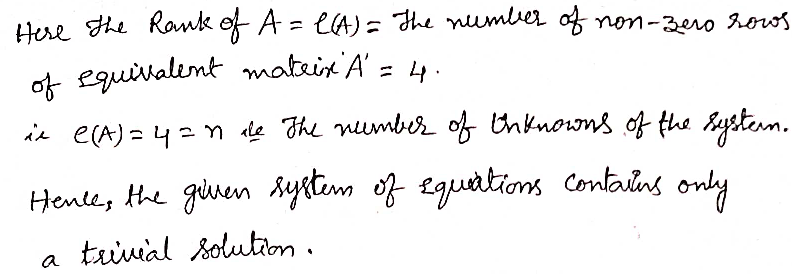 Here the Rank of A = ρ(A) = The number of non-zero rows
of equivalent matrix 'A' = 4.
ie ρ(A) = 4 = n ie The number of Unknowns of the system.
Hence, the given system of equations contains only
a trivial solution.